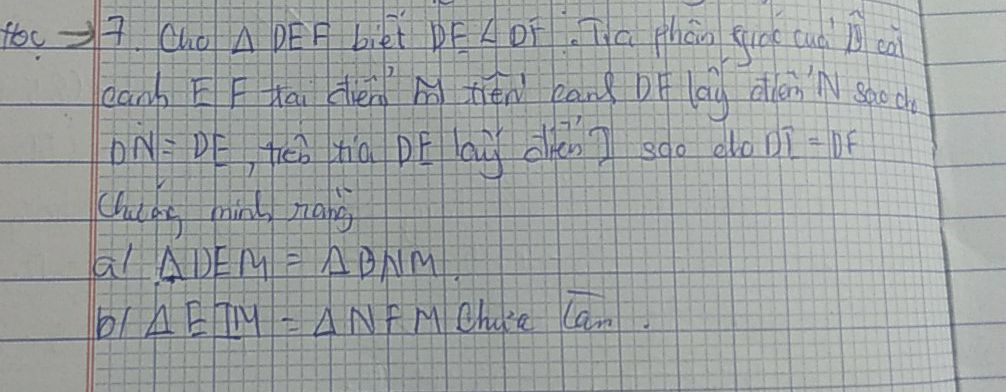 Học → 7. Cho Δ DEF biết DE < DF. Tia phân giác của D̂ cắt
cạnh EF tại điểm M trên cạnh DF lấy điểm N sao cho
DN = DE, trên tia DE lấy điểm I sao cho DI = DF
Chứng minh rằng
a/ ΔDEM = ΔDNM.
b/ ΔEIM = ΔNFM Chưa làm.